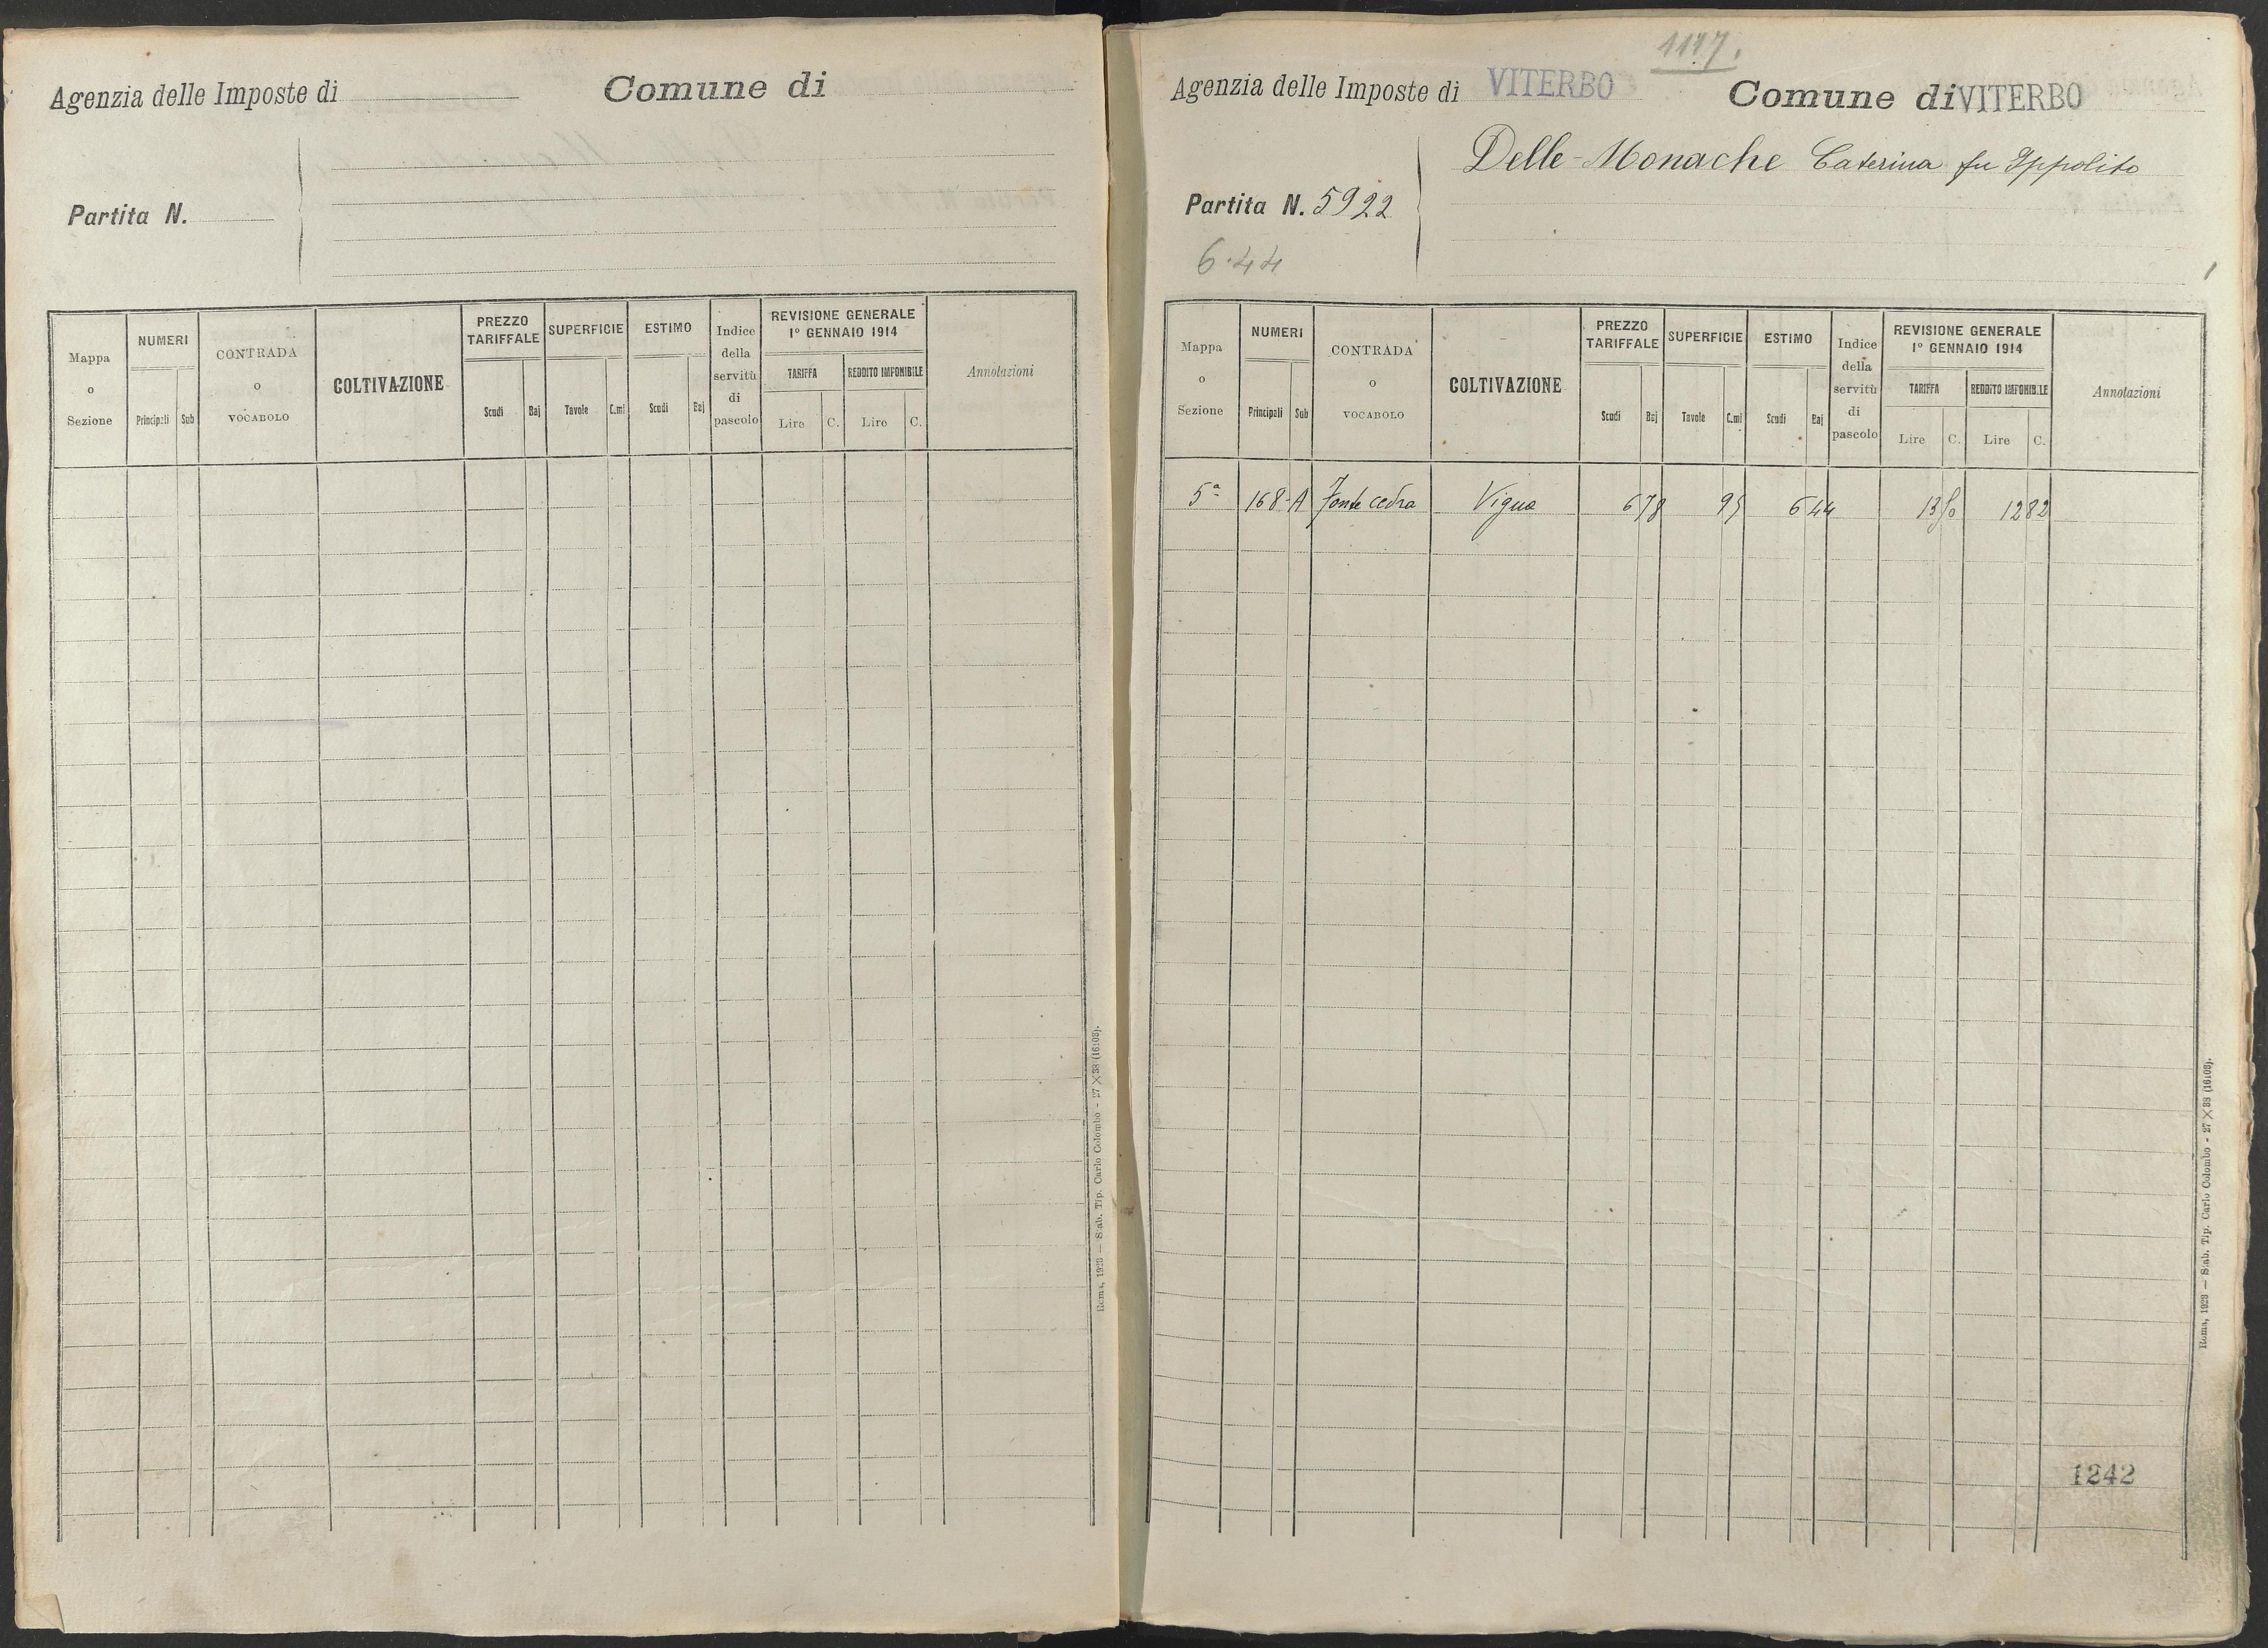 Agenzia delle Imposte di
Comune di
Partita N.
Mappa o Sezione
NUMERI
Principali Sub
CONTRADA o VOCABOLO
COLTIVAZIONE
PREZZO TARIFFALE
Scudi Baj
SUPERFICIE
Tavole C.mi
ESTIMO
Scudi Baj
Indice della servitù di pascolo
REVISIONE GENERALE
1º GENNAIO 1914
TARIFFA
Lire C.
REDDITO IMPONIBILE
Lire C.
Annotazioni
Roma, 1923 — Stab. Tip. Carlo Colombo - 27 X 38 (16103).
1147.
Agenzia delle Imposte di VITERBO
Comune di VITERBO
Delle Monache Caterina fu Ippolito
Partita N. 5922
6.44
Mappa o Sezione
NUMERI
Principali Sub
CONTRADA o VOCABOLO
COLTIVAZIONE
PREZZO TARIFFALE
Scudi Baj
SUPERFICIE
Tavole C.mi
ESTIMO
Scudi Baj
Indice della servitù di pascolo
REVISIONE GENERALE
1º GENNAIO 1914
TARIFFA
Lire C.
REDDITO IMPONIBILE
Lire C.
Annotazioni
5ª 168-A Fonte cedra Vigna 6 78 95 6 44 13 50 12 82
Roma, 1923 — Stab. Tip. Carlo Colombo - 27 X 38 (16103).
1242